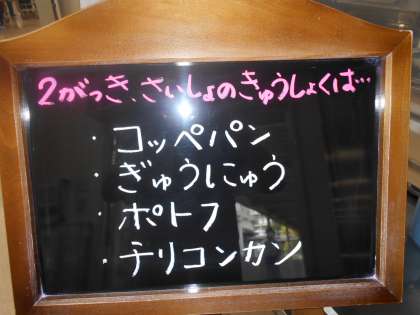 2がっき、さいしょのきゅうしょくは…
・コッペパン
・ぎゅうにゅう
・ポトフ
・チリコンカン